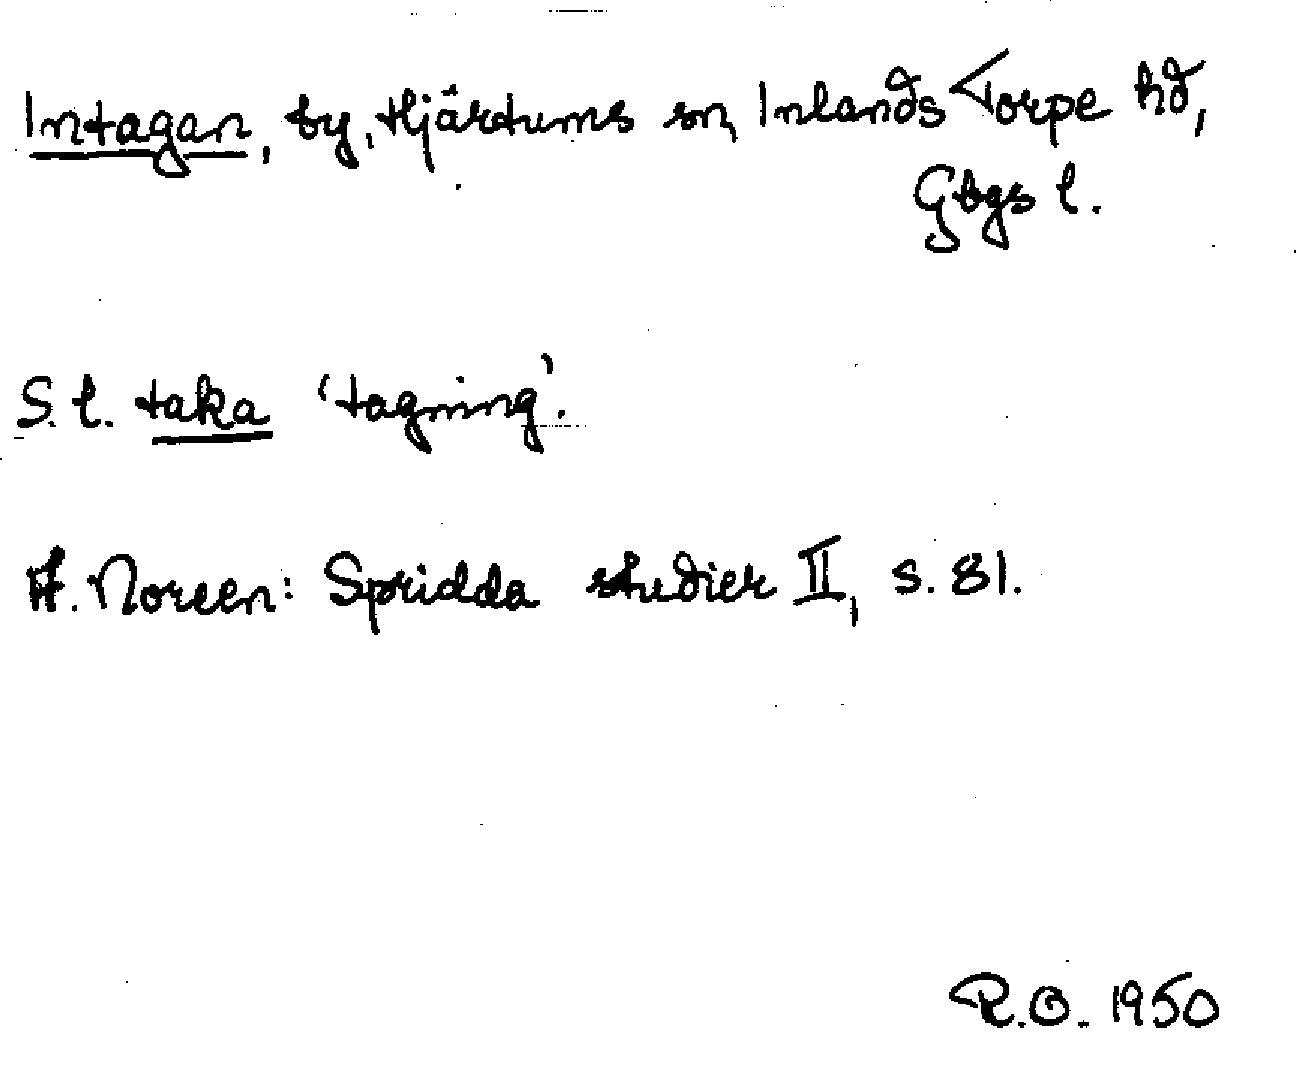 Intagan, by, Hjärtums sn, Inlands Torpe hd,
Gbgs l.
S. l. taka 'tagning'.
A. Noreen: Spridda studier II, s. 81.
R.O. 1950